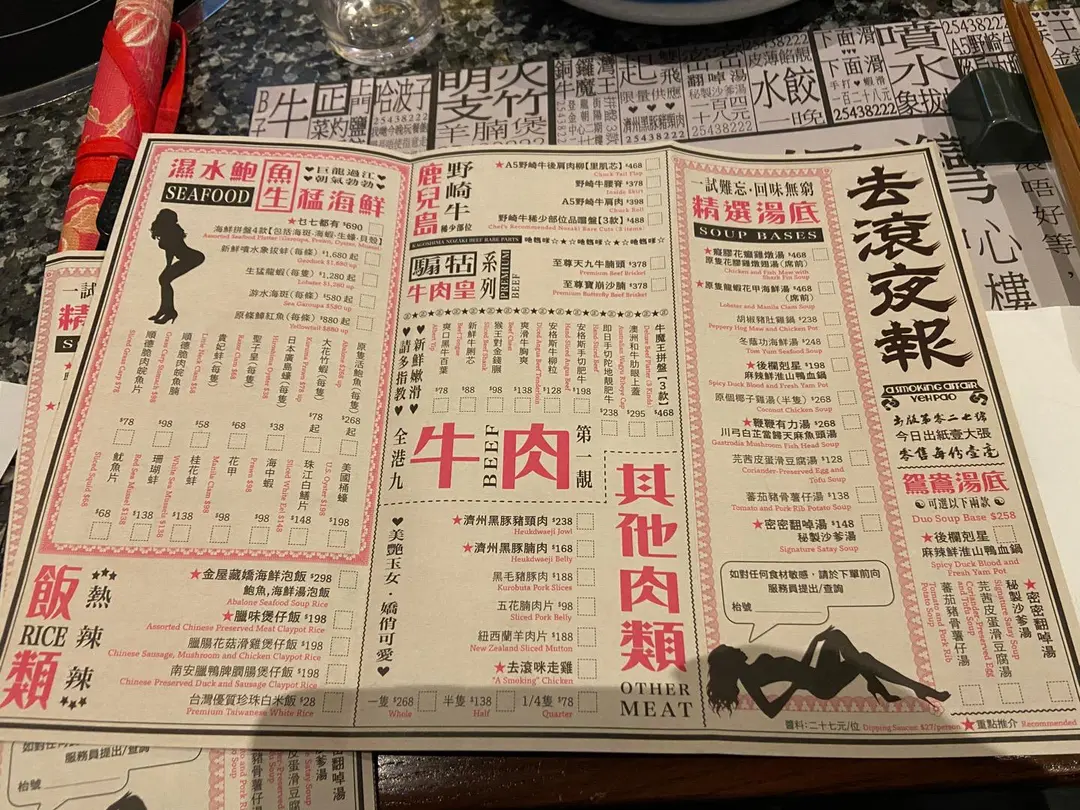 濕水鮑魚生猛海鮮
SEAFOOD
♥巨龍過江♥
♥朝氣勃勃♥
★乜七都有 $690
海鮮拼盤4款【包括海斑·海蝦·生蠔·貝殼】
Assorted Seafood Platter (Garoupa, Prawn, Oyster, Mussel)
新鮮噴水象拔蚌(每條) $1,680 起
Geoduck $1,680 up
生猛龍蝦(每隻) $1,280 起
Lobster $1,280 up
游水海斑(每條) $580 起
Sea Garoupa $580 up
原條鰤魟魚(每條) $880 起
Yellowtail $880 up
原隻活鮑魚(每隻) $268 起
Abalone $268 up
大花竹蝦(每隻) $78 起
Kuruma Prawn $78 up
日本廣島蠔(每隻) $38
Hiroshima Oyster $38
聖子皇(每隻) $68
Razor Clam $68
貴妃蚌(每隻) $58
順德脆肉皖魚腩 $98
順德脆肉皖魚片 $78
美國桶蠔 $198
U.S. Oyster $198
珠江白鱔片 $148
Sliced White Eel $148
海中蝦 $98
Prawn $98
花甲 $98
Manila Clam $98
桂花蚌 $138
珊瑚蚌 $138
Red Sea Mussel $138
魷魚片 $68
Sliced Squid $68
飯類
RICE
熱辣辣
★金屋藏嬌海鮮泡飯 $298
鮑魚,海鮮湯泡飯
Abalone Seafood Soup Rice
★臘味煲仔飯 $198
Assorted Chinese Preserved Meat Claypot Rice
臘腸花菇滑雞煲仔飯 $198
Chinese Sausage, Mushroom and Chicken Claypot Rice
南安臘鴨脾膶腸煲仔飯 $198
Chinese Preserved Duck and Sausage Claypot Rice
台灣優質珍珠白米飯 $28
Premium Taiwanese White Rice
鹿兒島野崎牛
稀少部位
KAGOSHIMA NOZAKI BEEF RARE PARTS
★A5野崎牛後肩肉柳【里肌芯】 $468
Chuck Tail Flap
野崎牛腰脊 $378
Inside Skirt
野崎牛A5肩肉 $398
Chuck Roll
野崎牛稀少部位品嚐盤【3款】 $488
Chef's Recommended Nozaki Rare Cuts (3 items)
騸牯牛肉皇系列
PREMIUM BEEF
至尊天九牛腩頭 $378
Premium Beef Brisket
至尊寶崩沙腩 $378
Premium Butterfly Beef Brisket
♥新鮮嫩滑♥
♥請多指教♥
牛魔王拼盤【3款】 $468
Deluxe Beef Platter (3 Kinds)
澳洲和牛肋眼上蓋 $295
Australian Wagyu Ribeye Cap
即日手切陀地靚肥牛 $238
安格斯手切肥牛 $198
Hand-Sliced Angus Beef
安格斯牛柳粒 $128
Diced Angus Beef Tenderloin
爽滑牛胸爽 $138
猴王對金錢𦟌 $98
Sliced Beef Shank
新鮮牛脷芯 $88
Beef Tongue
爽口黑牛百葉 $78
全港九
牛肉
BEEF
第一靚
♥美艷玉女·嬌俏可愛♥
其他肉類
OTHER MEAT
★濟州黑豚豬頸肉 $238
Heukdwaeji Jowl
★濟州黑豚腩肉 $168
Heukdwaeji Belly
黑毛豬豚肉 $188
Kurobuta Pork Slices
五花腩肉片 $98
Sliced Pork Belly
紐西蘭羊肉片 $188
New Zealand Sliced Mutton
★去滾咪走雞
"A Smoking" Chicken
一隻 $268
Whole
半隻 $138
Half
1/4隻 $78
Quarter
一試難忘·回味無窮
精選湯底
SOUP BASES
★癲膠花癲雞燉湯 $468
原隻花膠雞燉雞湯(席前)
Chicken and Fish Maw with Shark Fin Soup
★原隻龍蝦花甲海鮮湯 $468
(席前)
Lobster and Manila Clam Soup
胡椒豬肚雞鍋 $238
Peppery Hog Maw and Chicken Pot
冬蔭功海鮮湯 $248
Tom Yum Seafood Soup
★後欄剋星 $198
麻辣鮮淮山鴨血鍋
Spicy Duck Blood and Fresh Yam Pot
原個椰子雞湯(半隻) $268
Coconut Chicken Soup
★鞭鞭有力湯 $268
川弓白芷當歸天麻魚頭湯
Gastrodia Mushroom Fish Head Soup
芫茜皮蛋滑豆腐湯 $128
Coriander-Preserved Egg and Tofu Soup
蕃茄豬骨薯仔湯 $138
Tomato and Pork Rib Potato Soup
★密密翻啅湯 $148
秘製沙爹湯
Signature Satay Soup
如對任何食材敏感,請於下單前向
服務員提出/查詢
枱號
去滾夜報
A SMOKING AFFAIR
YEH PAO
出版第零二七號
今日出紙壹大張
零售每份壹毫
鴛鴦湯底
可選以下兩款
Duo Soup Base $258
★後欄剋星
麻辣鮮淮山鴨血鍋
Spicy Duck Blood and Fresh Yam Pot
★密密翻啅湯
秘製沙爹湯
Signature Satay Soup
芫茜皮蛋滑豆腐湯
Coriander-Preserved Egg and Tofu Soup
蕃茄豬骨薯仔湯
Tomato and Pork Rib Potato Soup
醬料:二十七元/位 Dipping Sauces: $27/person
★重點推介 Recommended
25438222
水餃
噴水
如對任何食材敏感,請於下單前向
服務員提出/查詢
枱號